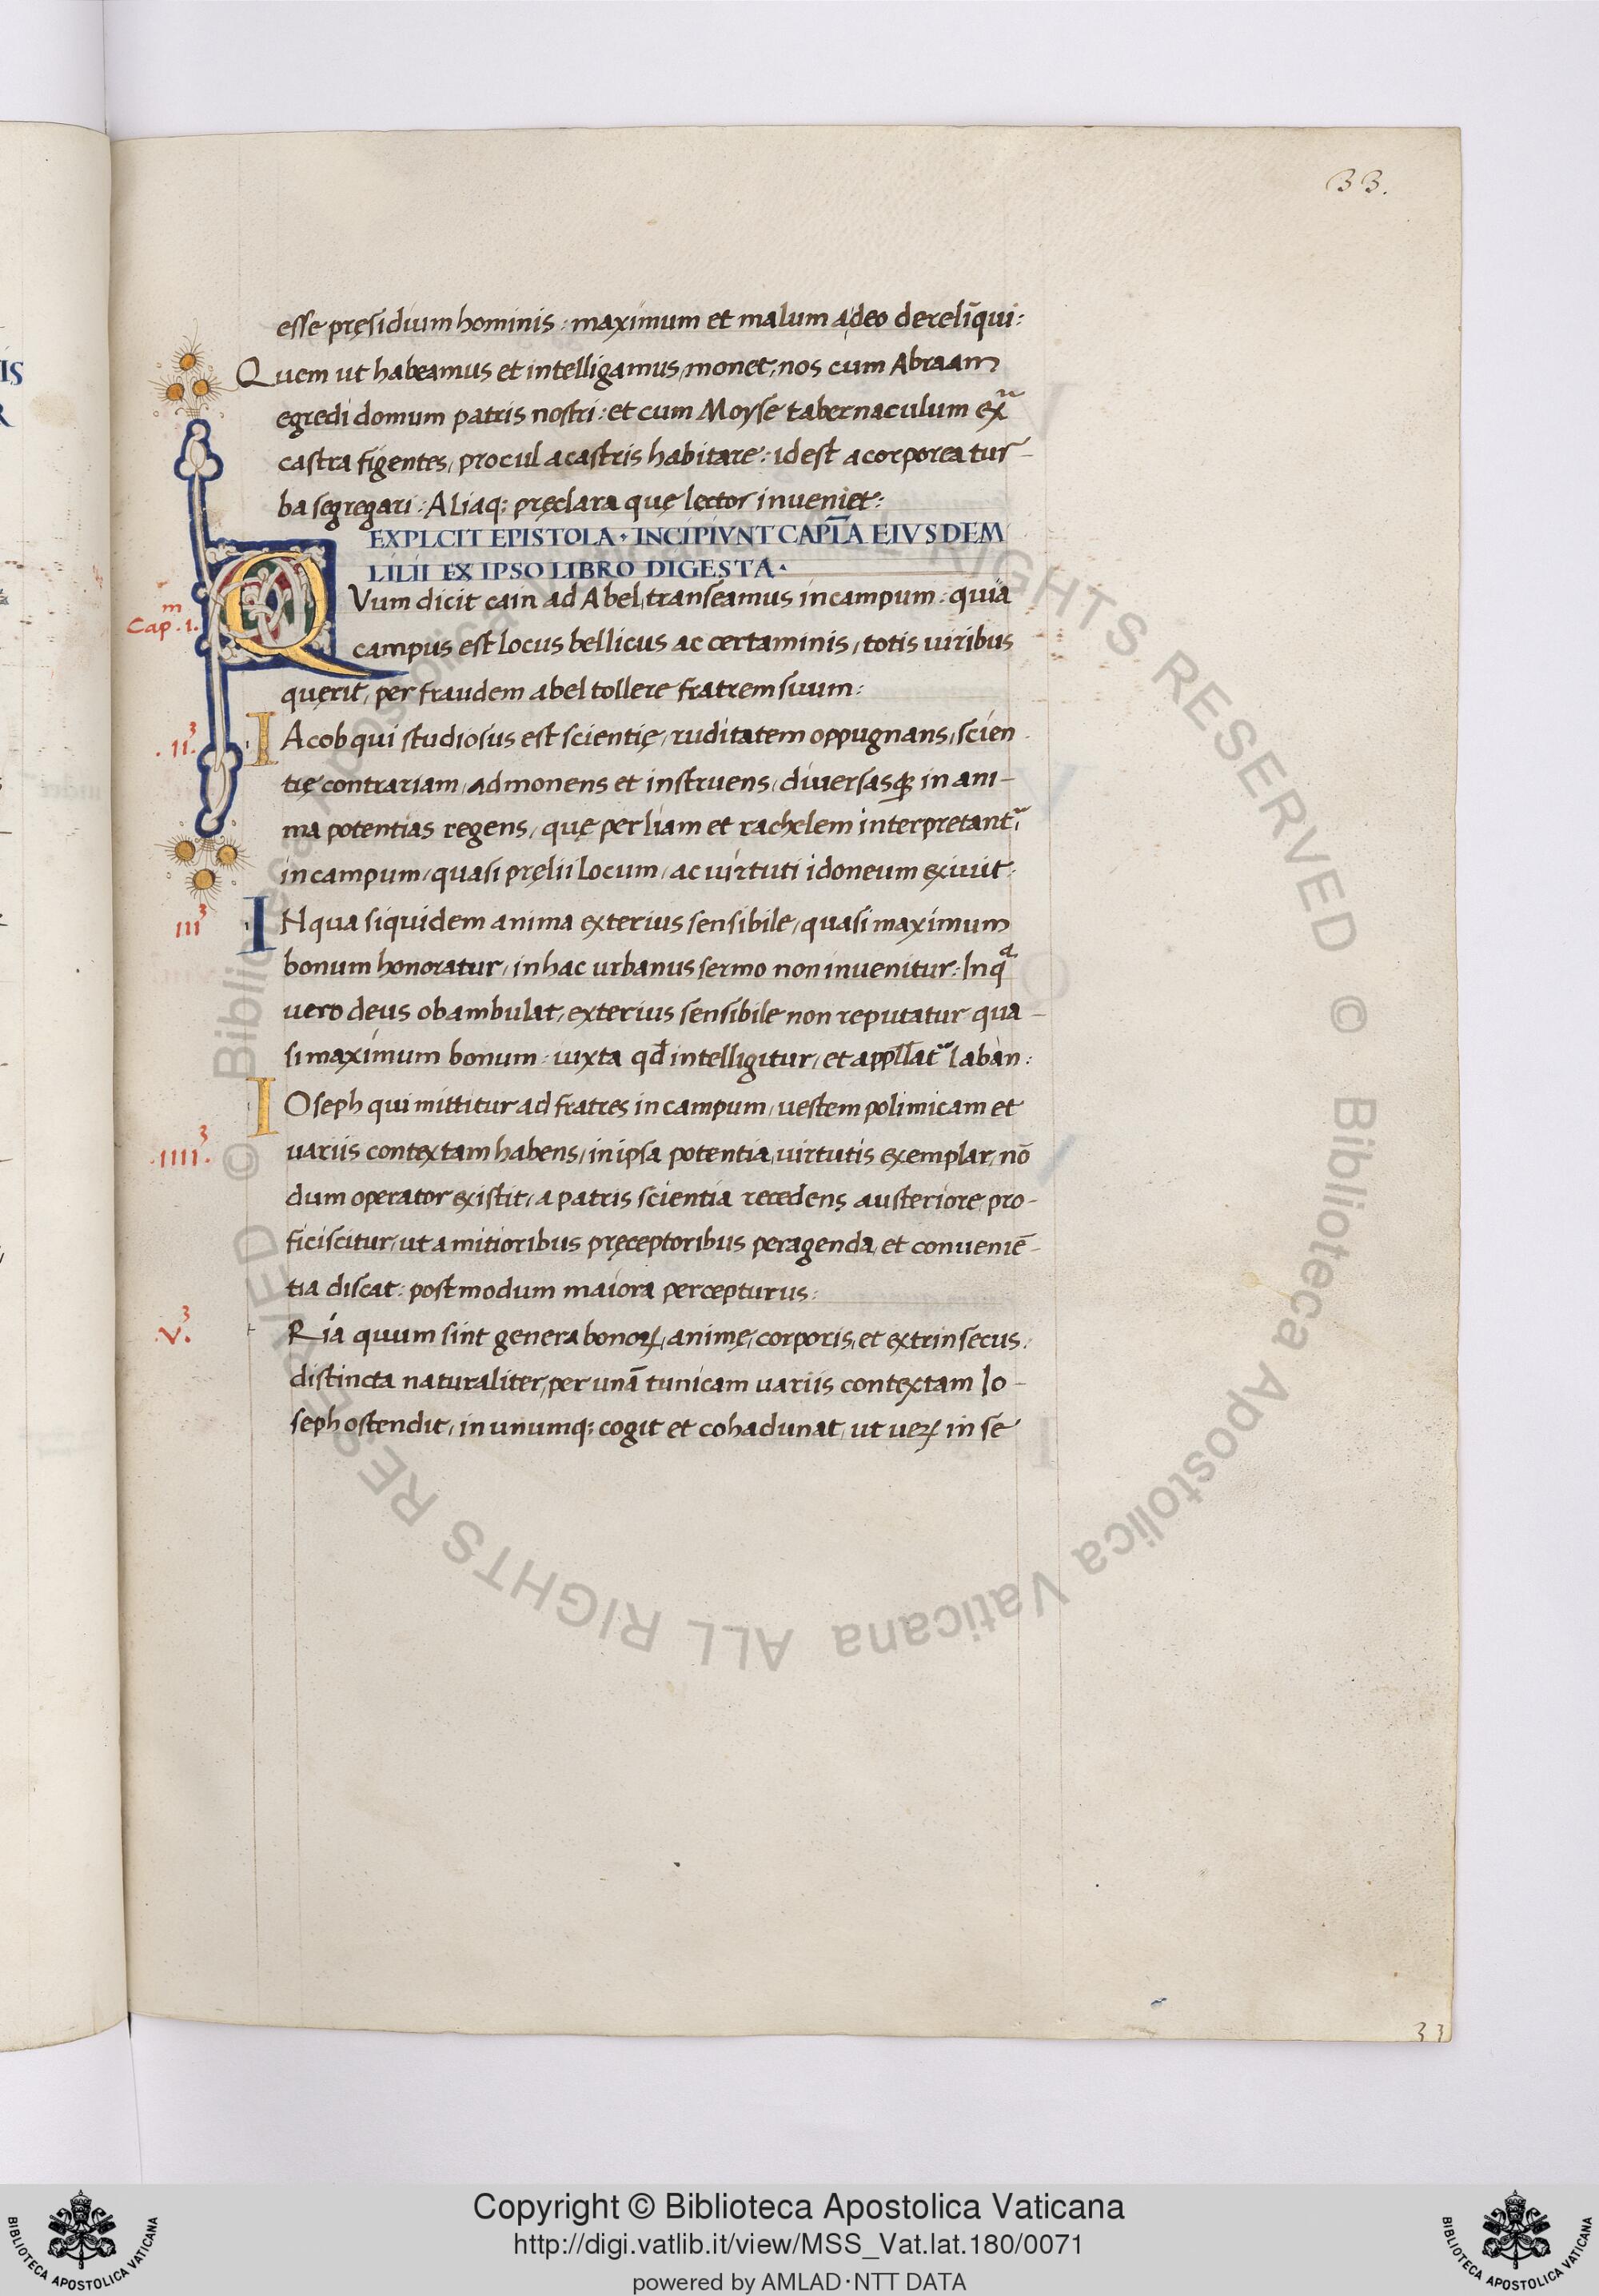 33.
esse pręsidium hominis : maximum et malum a deo derelīqui :
Quem ut habeamus et intelligamus, monet, nos cum Abraam
egredi domum patris nostri : et cum Moyse tabernaculum ex̃
castra figentes, procul a castris habitare : id est a corporea tur-
ba segregari : Aliaq; pręclara quę lector inueniet :
EXPLCIT EPISTOLA · INCIPIVNT CAPĪTA EIVSDEM
LILII EX IPSO LIBRO DIGESTA ·
Cap.m .1.
QVum dicit cain ad Abel, transeamus in campum : quia
campus est locus bellicus ac certaminis, totis uiribus
quęrit, per fraudem abel tollere fratrem suum :
.II.3
IAcob qui studiosus est scientię, ruditatem oppugnans, scien
tię contrariam, admonens et instruens, diuersasq; in ani-
ma potentias regens, quę per liam et rachelem interpretant᷑,
in campum, quasi pręlii locum, ac uirtuti idoneum exiuit :
III3
IN qua siquidem anima exterius sensibile, quasi maximum
bonum honoratur, in hac urbanus sermo non inuenitur : In qª
uero deus obambulat, exterius sensibile non reputatur qua-
si maximum bonum : iuxta qđ intelligitur, et appłłat᷑ laban :
IOseph qui mittitur ad fratres in campum, uestem polimicam et
.IIII.3
uariis contextam habens, in ipsa potentia, uirtutis exemplar, nō
dum operator existit, a patris scientia recedens austeriore, pro-
ficiscitur, ut a mitioribus pręceptoribus peragenda, et conueniē-
tia discat : postmodum maiora percepturus :
.V.3
tRia quum sint genera bonoꝝ, animę, corporis, et extrinsecus :
distincta naturaliter, per unā tunicam uariis contextam Io-
seph ostendit, in unumq; cogit et cohadunat, ut ueꝝ in se
33
Copyright © Biblioteca Apostolica Vaticana
http://digi.vatlib.it/view/MSS_Vat.lat.180/0071
powered by AMLAD·NTT DATA
BIBLIOTECA APOSTOLICA VATICANA
BIBLIOTECA APOSTOLICA VATICANA
© Biblioteca Apostolica Vaticana ALL RIGHTS RESERVED © Biblioteca Apostolica Vaticana ALL RIGHTS RESERVED